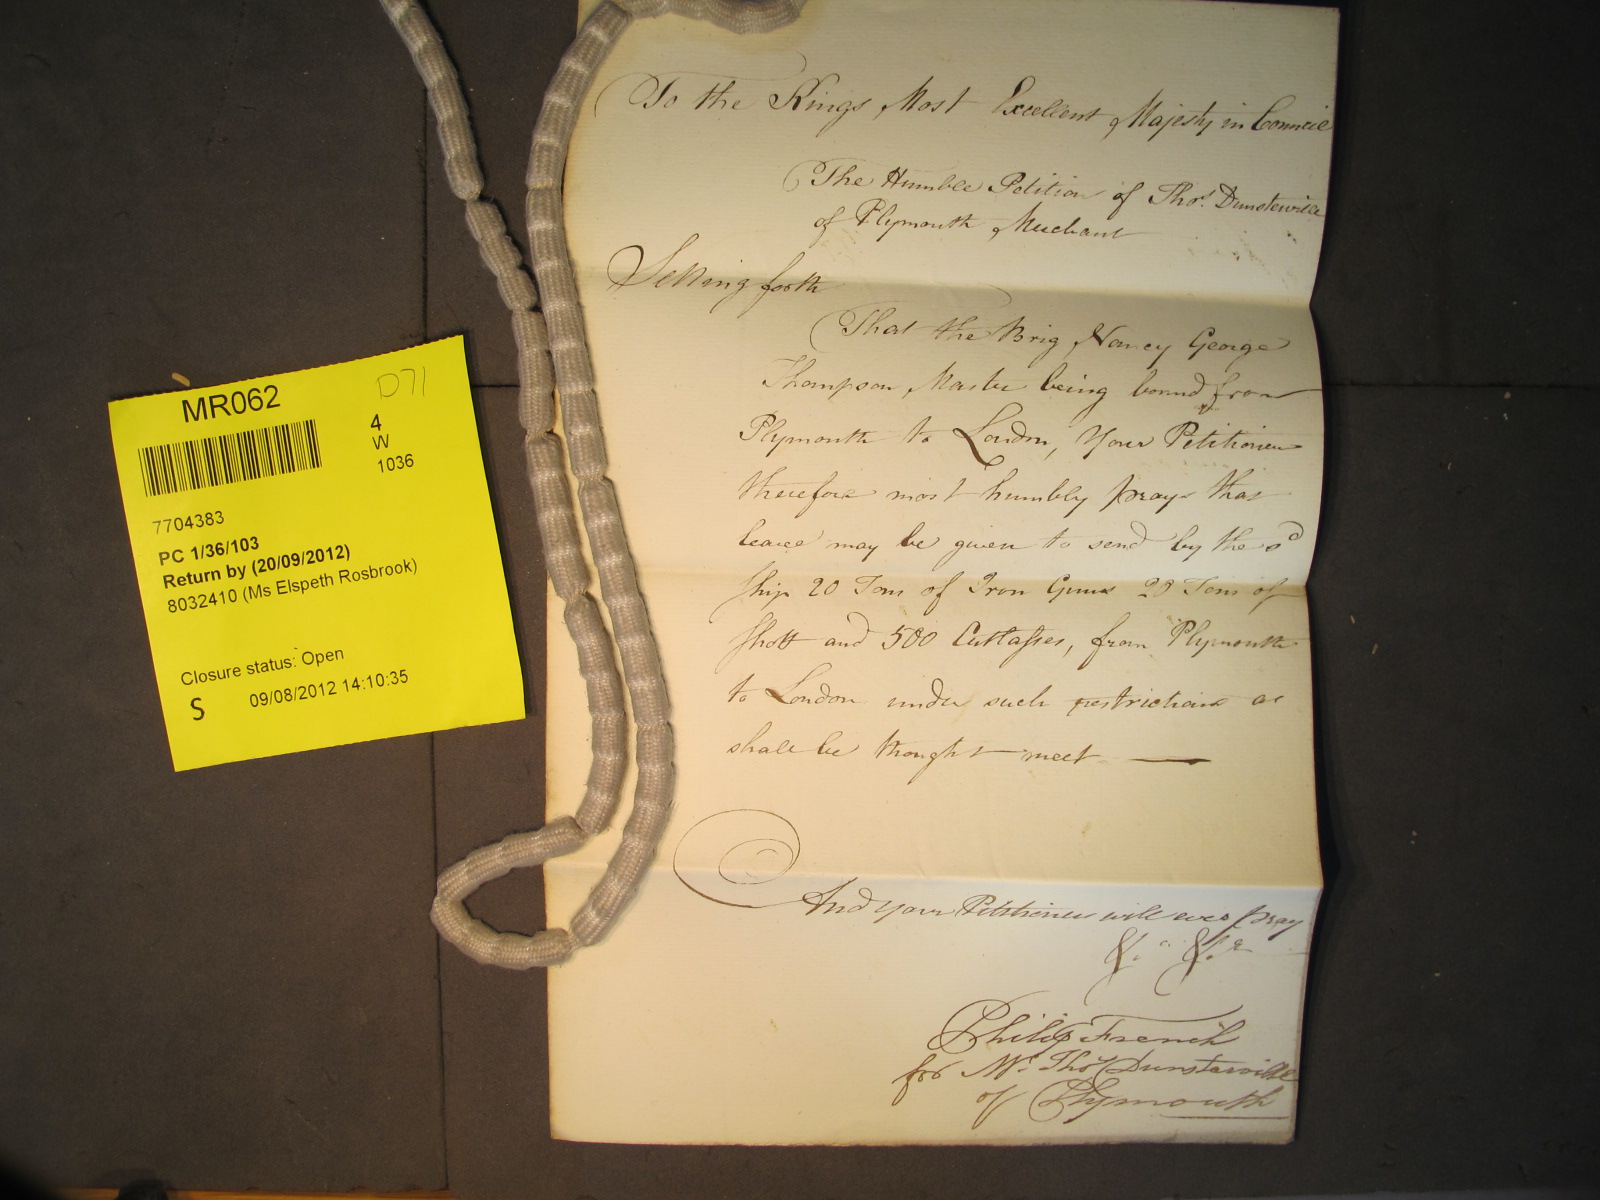 To the Kings Most Excellent Majesty in Council
The Humble Petition of Thos. Dunsterville
of Plymouth Merchant
Setting forth
That the Brig Nancy George
Thompson Master being bound from
Plymouth to London, Your Petitioner
therefore most humbly prays that
leave may be given to send by the sd
ship 20 Tons of Iron Guns 20 Tons of
Shott and 500 Cutlasses, from Plymouth
to London under such restrictions as
shall be thought meet —
And your Petitioner will ever pray
&c. &ca
Philip French
for Mr. Thos Dunsterville
of Plymouth
MR062
D71
4
W
1036
7704383
PC 1/36/103
Return by (20/09/2012)
8032410 (Ms Elspeth Rosbrook)
Closure status: Open
S 09/08/2012 14:10:35